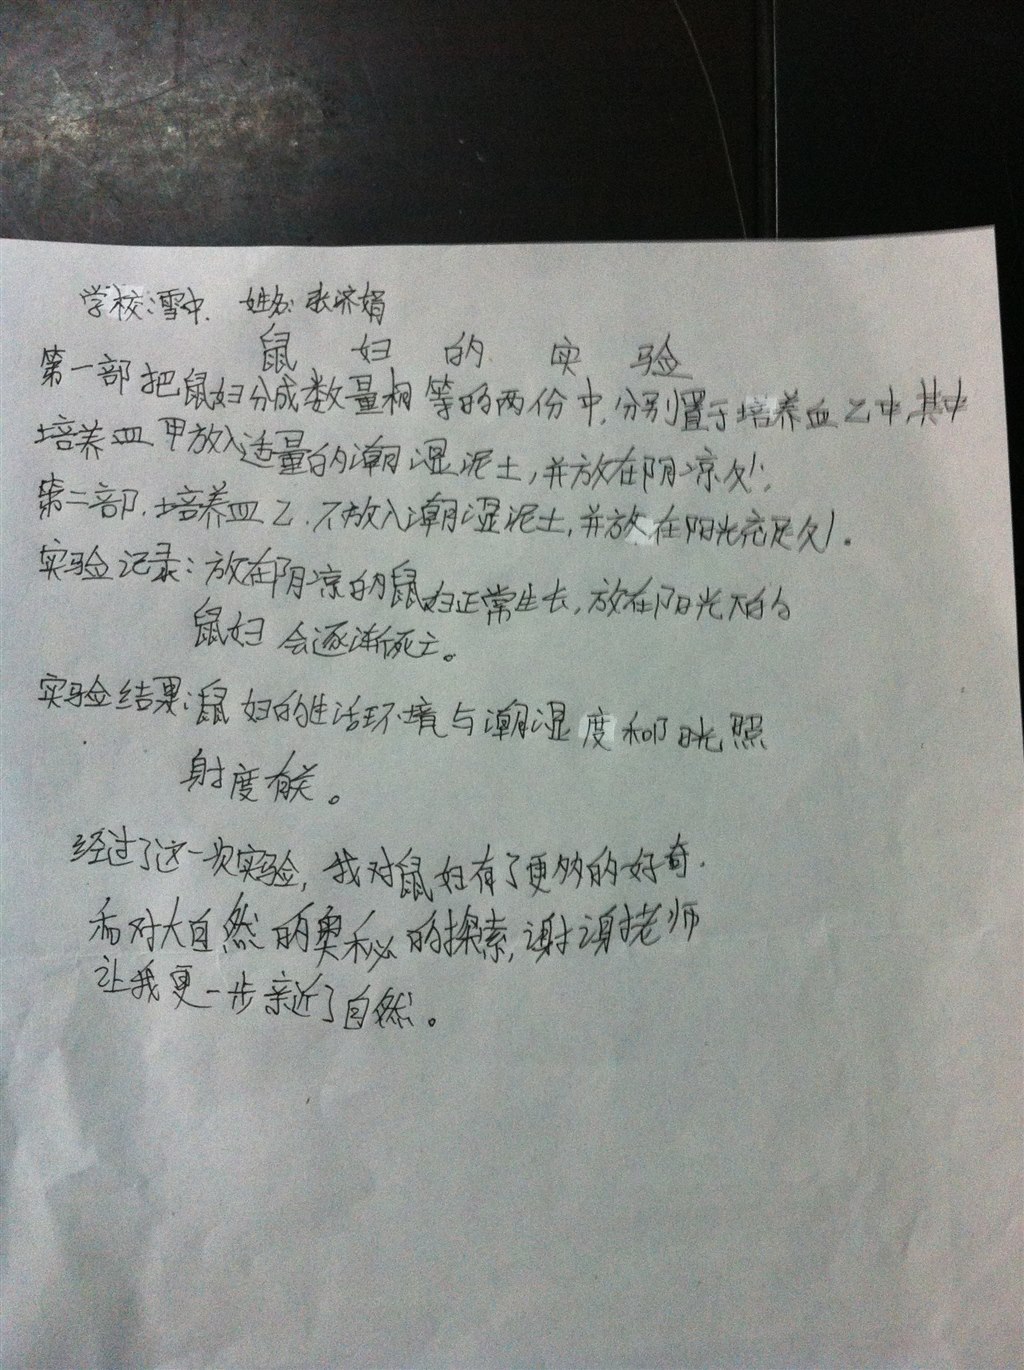 学校:雪中. 姓名:张济娟
鼠妇的实验
第一部把鼠妇分成数量相等的两份中,分别置于培养皿乙中,其中
培养皿甲放入适量的潮湿泥土,并放在阴凉处;
第二部.培养皿乙.不放入潮湿泥土,并放在阳光充足处。
实验记录:放在阴凉的鼠妇正常生长,放在阳光下的
鼠妇会逐渐死亡。
实验结果:鼠妇的生活环境与潮湿度和照
射度有关。
经过了这一次实验,我对鼠妇有了更多的好奇.
和对大自然的奥秘的探索,谢谢老师
让我更一步亲近了自然。